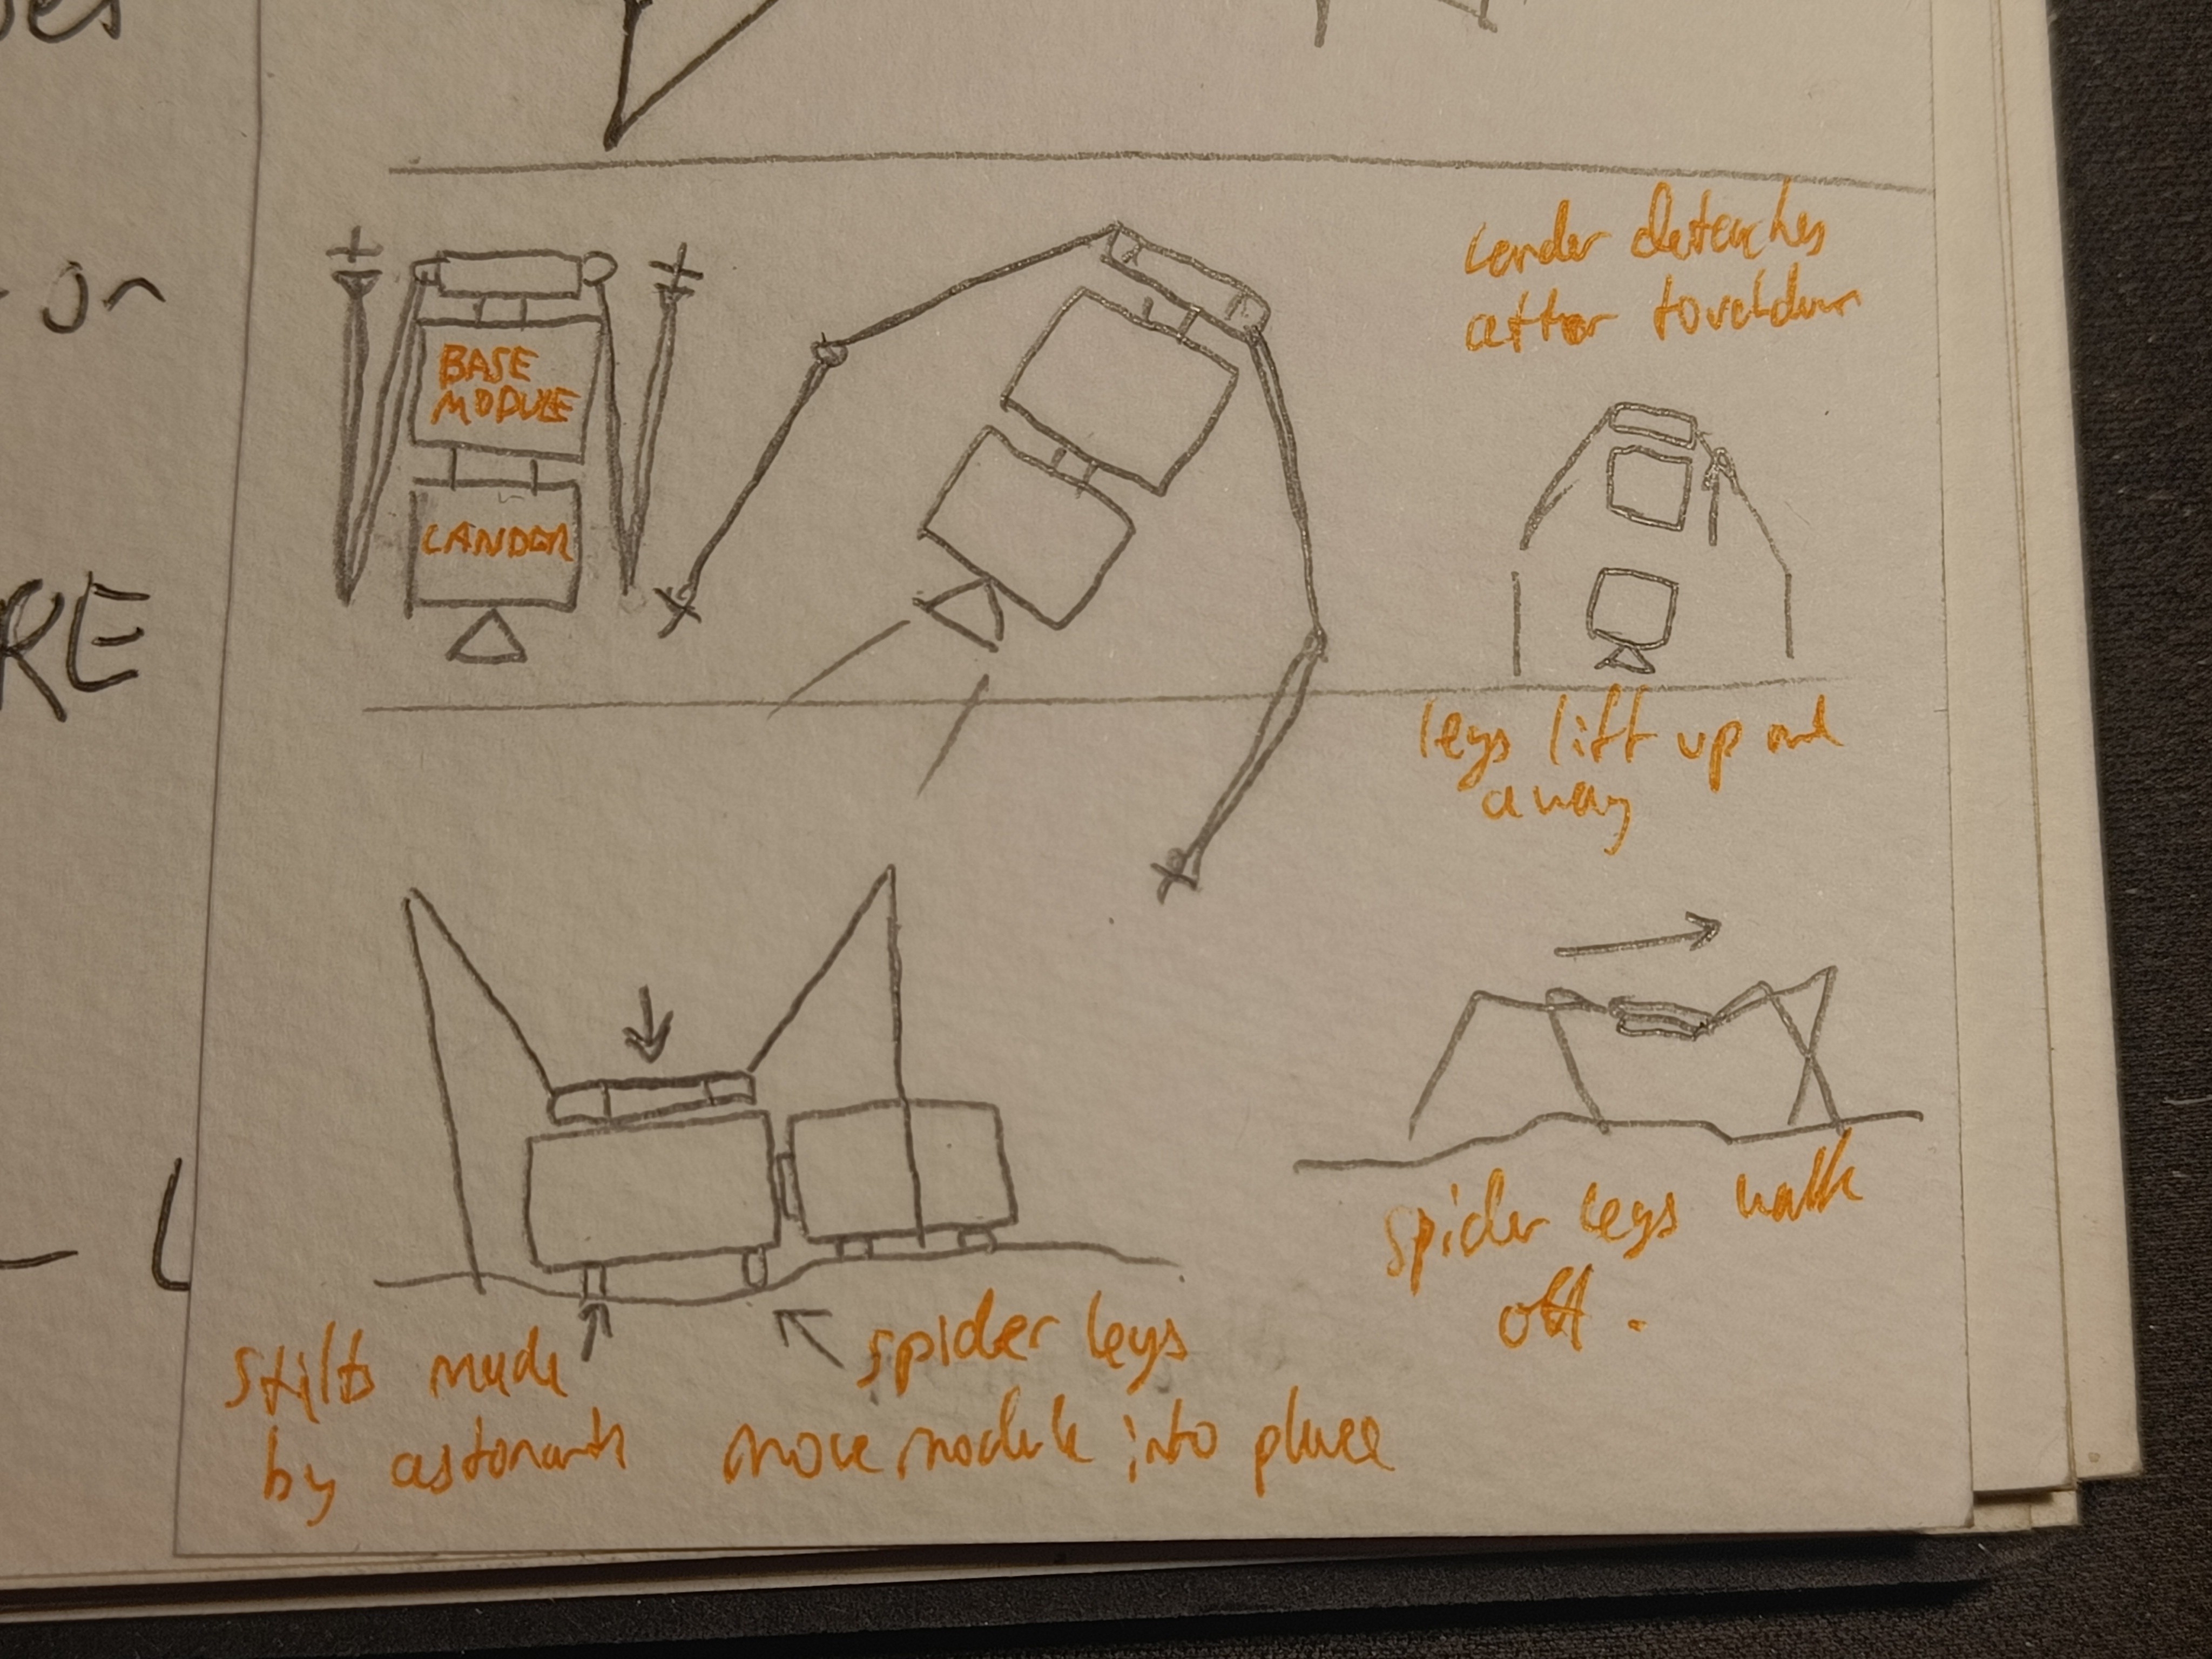 or
RE
BASE
MODULE
LANDER
Lander detaches
after touchdown
legs lift up and
away
stilts made
by astonants
spider legs
move module into place
spider legs walk
off.